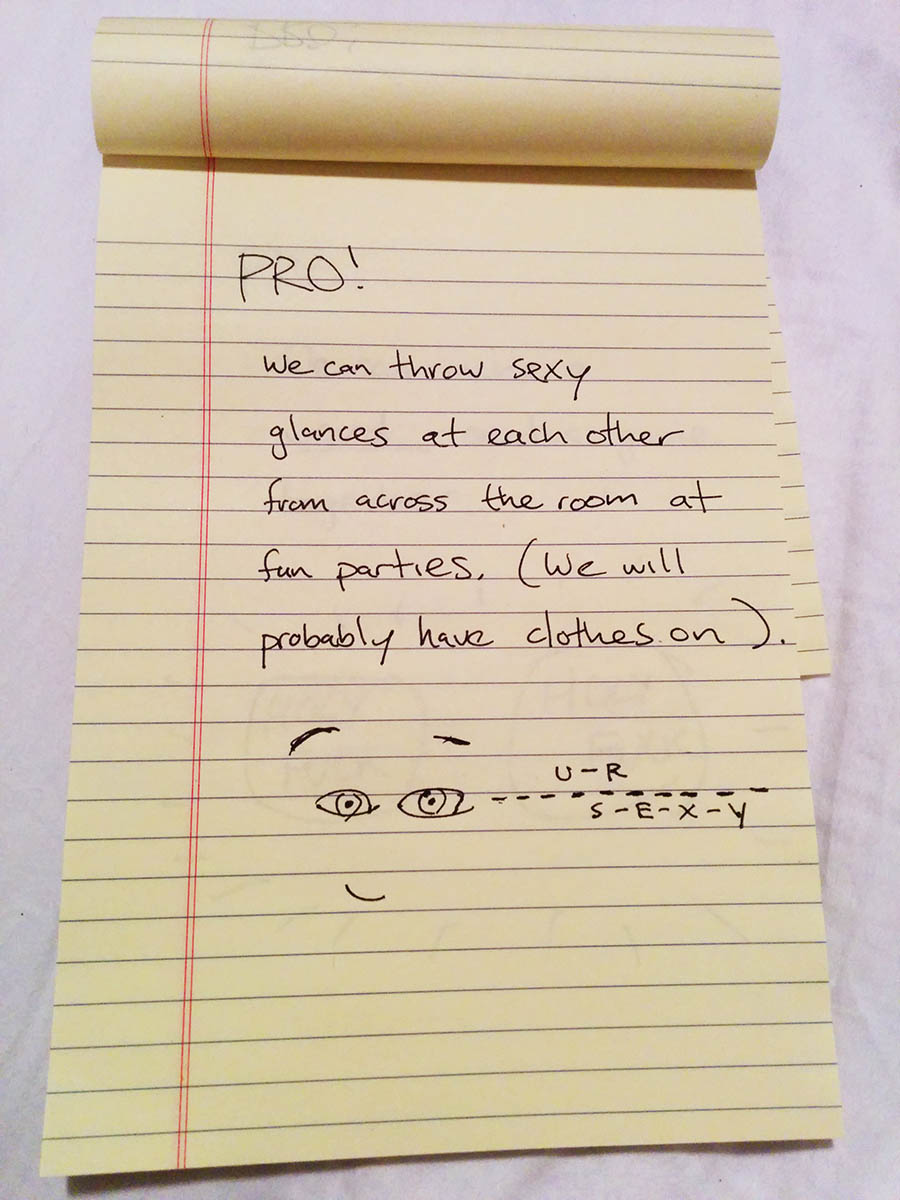 PRO!
We can throw sexy
glances at each other
from across the room at
fun parties. (We will
probably have clothes on).
U-R
S-E-X-Y